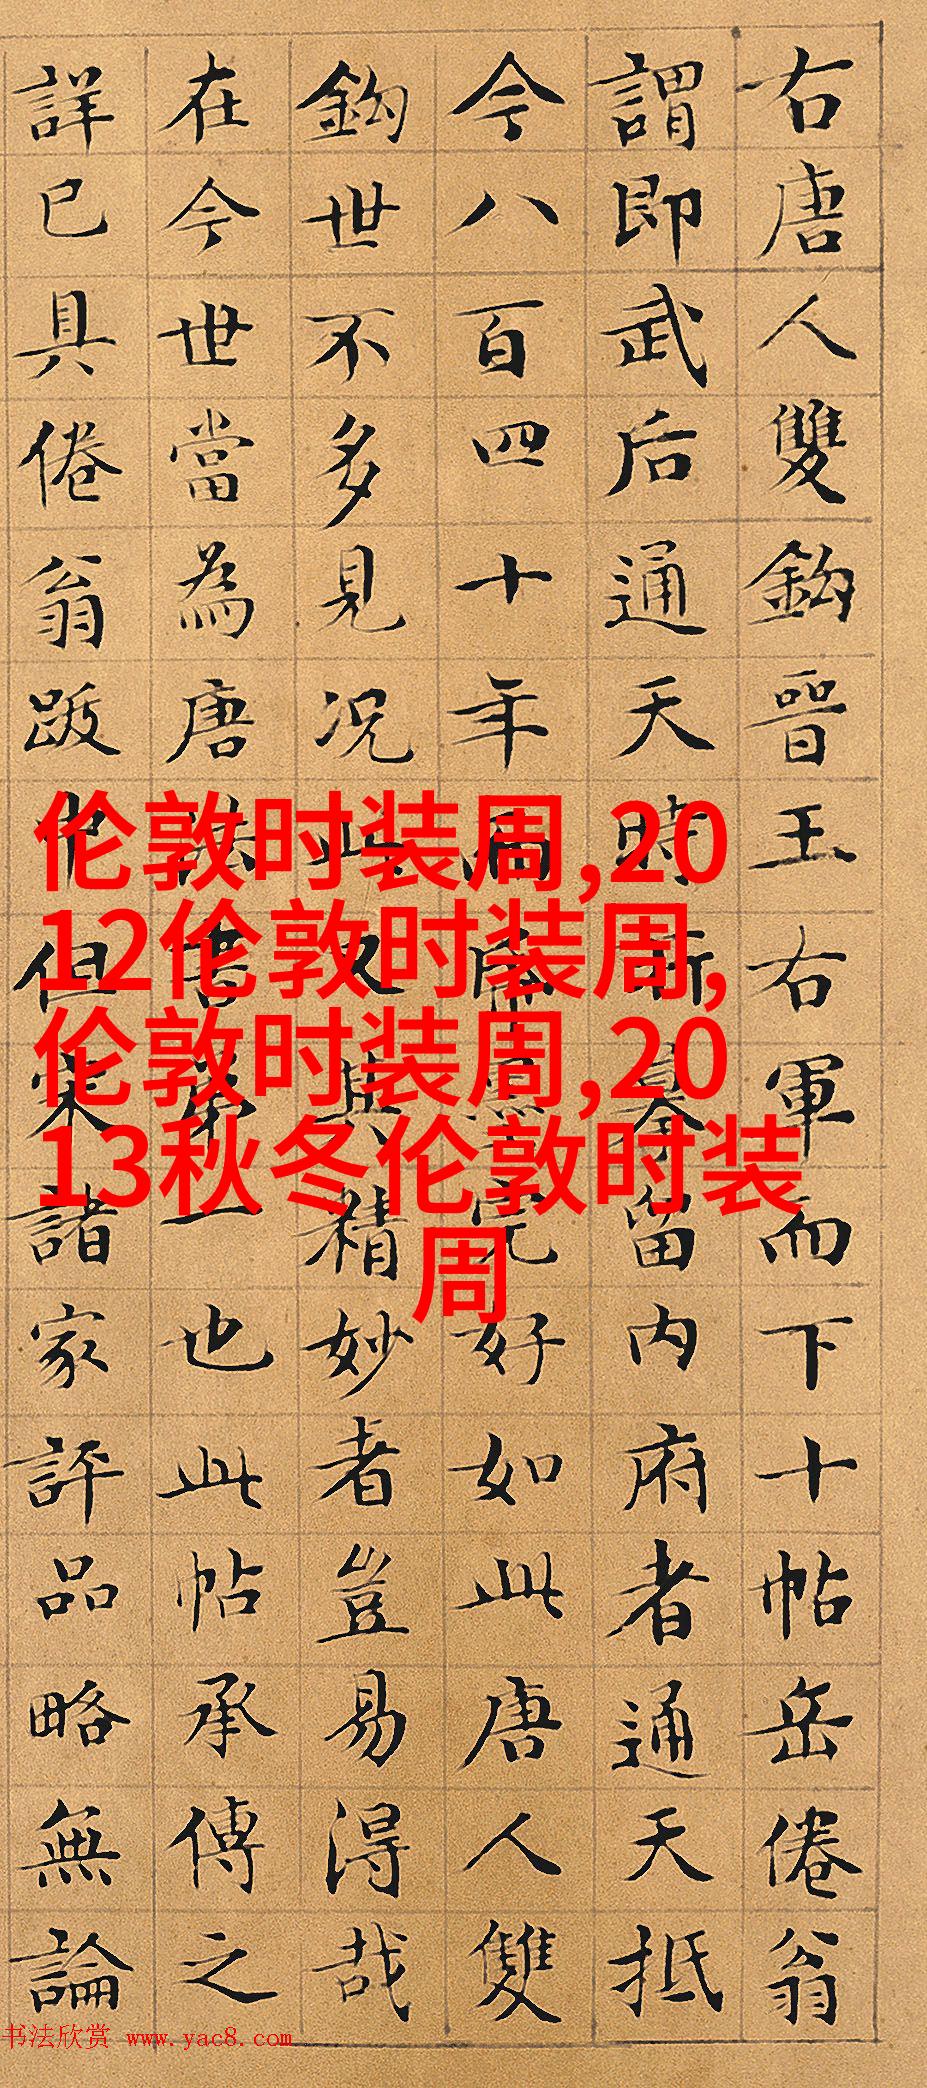 右唐人雙鈎晉王右軍而下十帖岳倦翁
謂即武后通天時所摹留内府者通天抵
今八百四十年而紙墨完好如此唐人雙
鈎世不多見况此又其精妙者豈易得哉
在今世當為唐法書第一也此帖承傳之
詳已具倦翁跋中但宋諸家評品略無論
伦敦时装周,20
12伦敦时装周,
伦敦时装周,20
13秋冬伦敦时装
周
书法欣赏 www.yac8.com